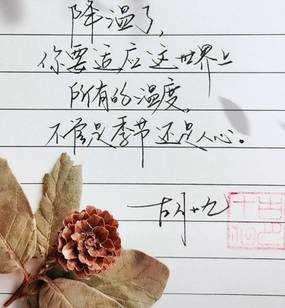 降温了，
你要适应这世界上
所有的温度，
不管是季节还是人心。
胡十九